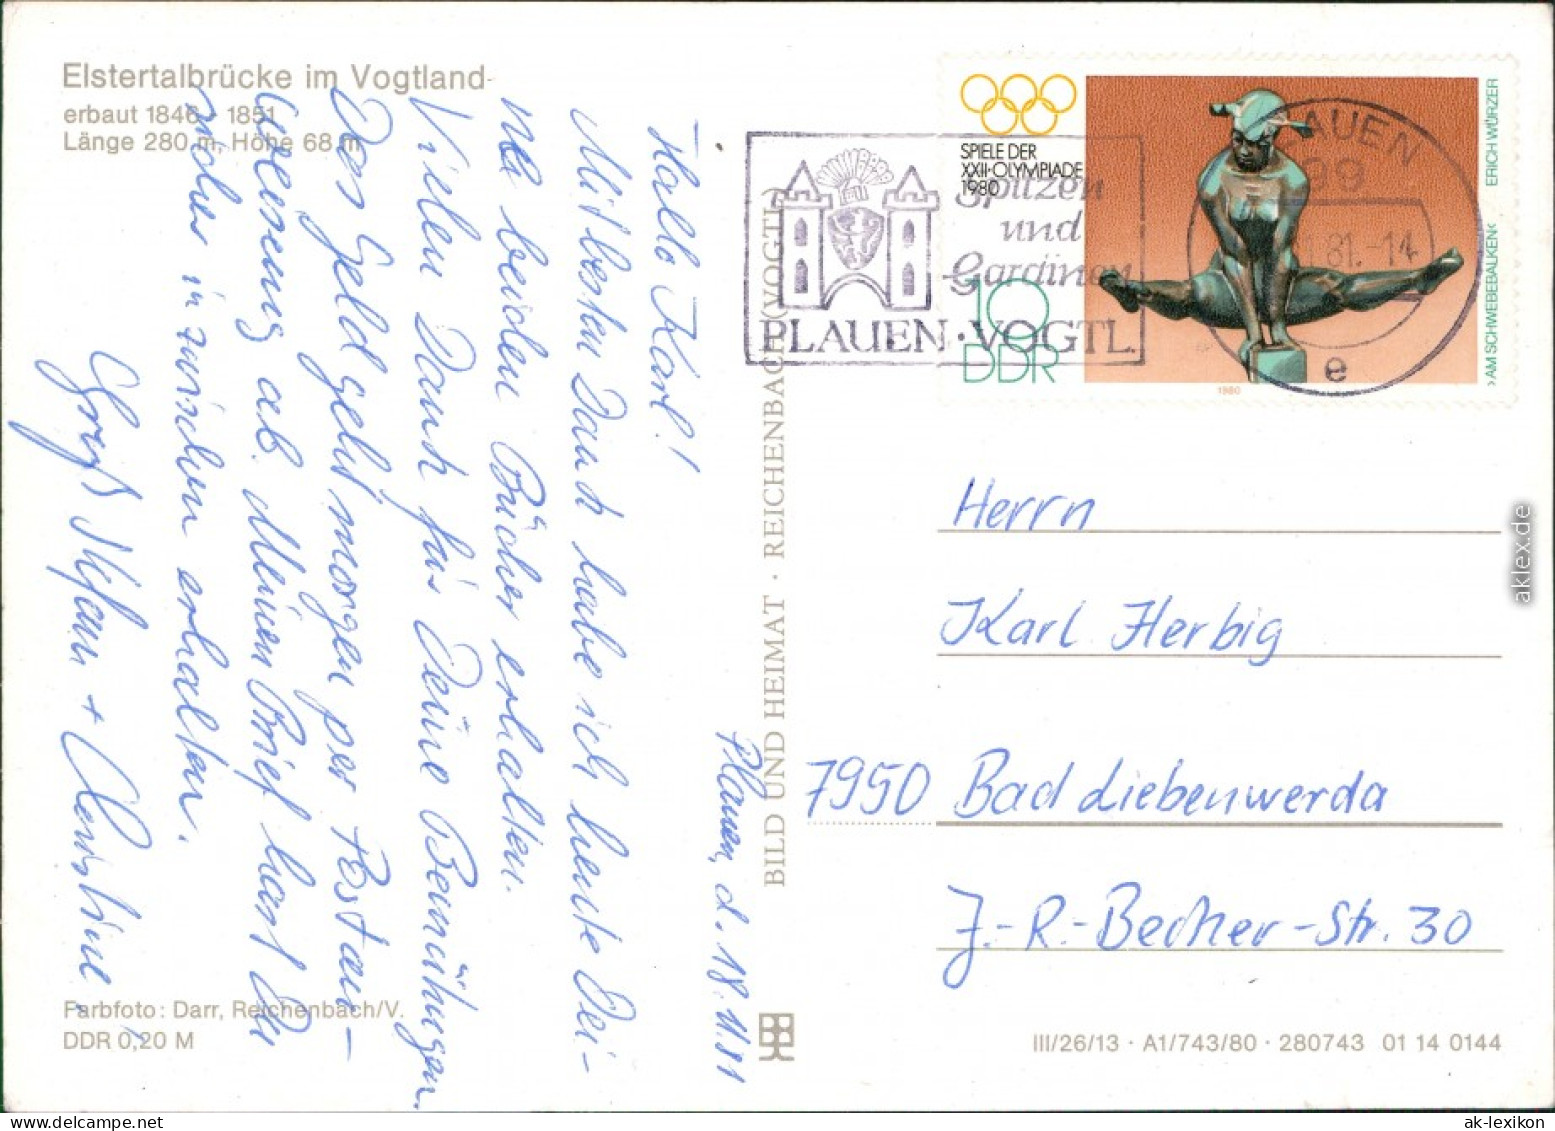 Elstertalbrücke im Vogtland
erbaut 1846 - 1851
Länge 280 m, Höhe 68 m
Plauen, d. 18.11.81
Hallo Karl!
Mit besten Dank habe ich heute Dei-
ne beiden Bücher erhalten.
Vielen Dank für Deine Bemühungen.
Das Geld geht morgen per Postan-
weisung ab. Meinen Brief hast Du
sicher inzwischen erhalten.
Gruß Stefan + Christine
Farbfoto: Darr, Reichenbach/V.
DDR 0,20 M
BILD UND HEIMAT · REICHENBACH (VOGTL)
SPIELE DER
XXII·OLYMPIADE
1980
10
DDR
1980
›AM SCHWEBEBALKEN‹ ERICH WÜRZER
Spitzen
und
Gardinen
PLAUEN·VOGTL.
PLAUEN
99
81.-14
e
Herrn
Karl Herbig
7950 Bad Liebenwerda
J.-R.-Becher-Str. 30
III/26/13 · A1/743/80 · 280743 01 14 0144
aklex.de
ak-lexikon